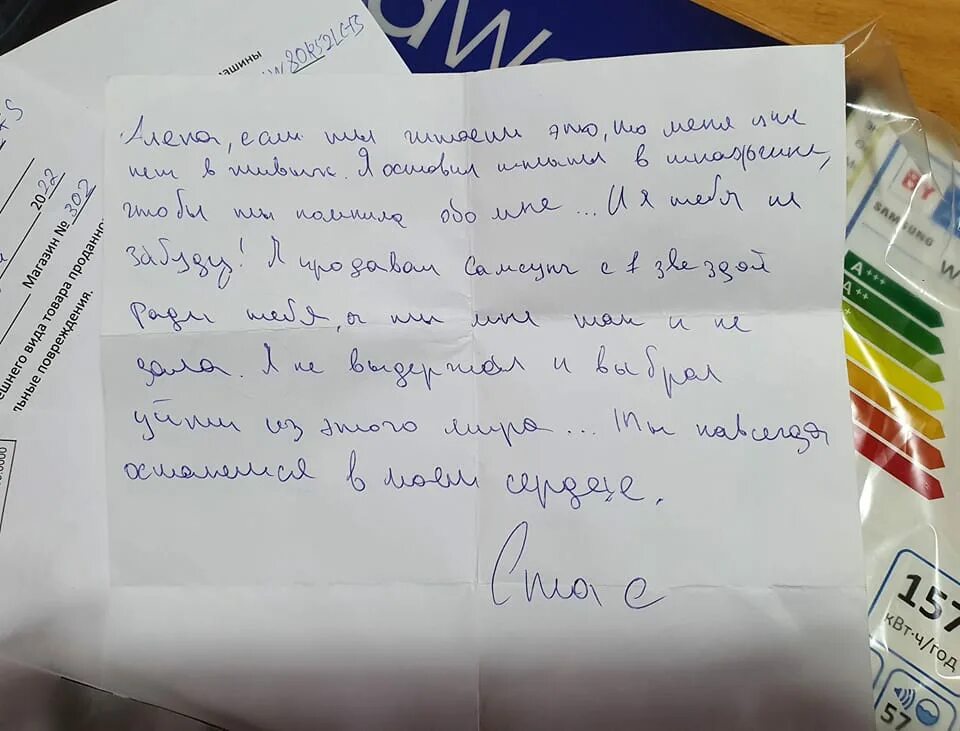 daWo
ашины
W 80R52LCTS
2022
Магазин № 302
ешнего вида товара проданно
льные повреждения.
Алена, если ты читаешь это, то меня уже
нет в живых. Я оставил штаны в шкафчике,
чтобы ты помнила обо мне... И я тебя не
забуду! Я продавал Самсунг с 1 звездой
ради тебя, а ты мне так и не
дала. Я не выдержал и выбрал
уйти из этого мира... Ты навсегда
останешься в моем сердце.
Стас
BY
SAMSUNG
W
A+++
A++
157
кВт·ч/год
57